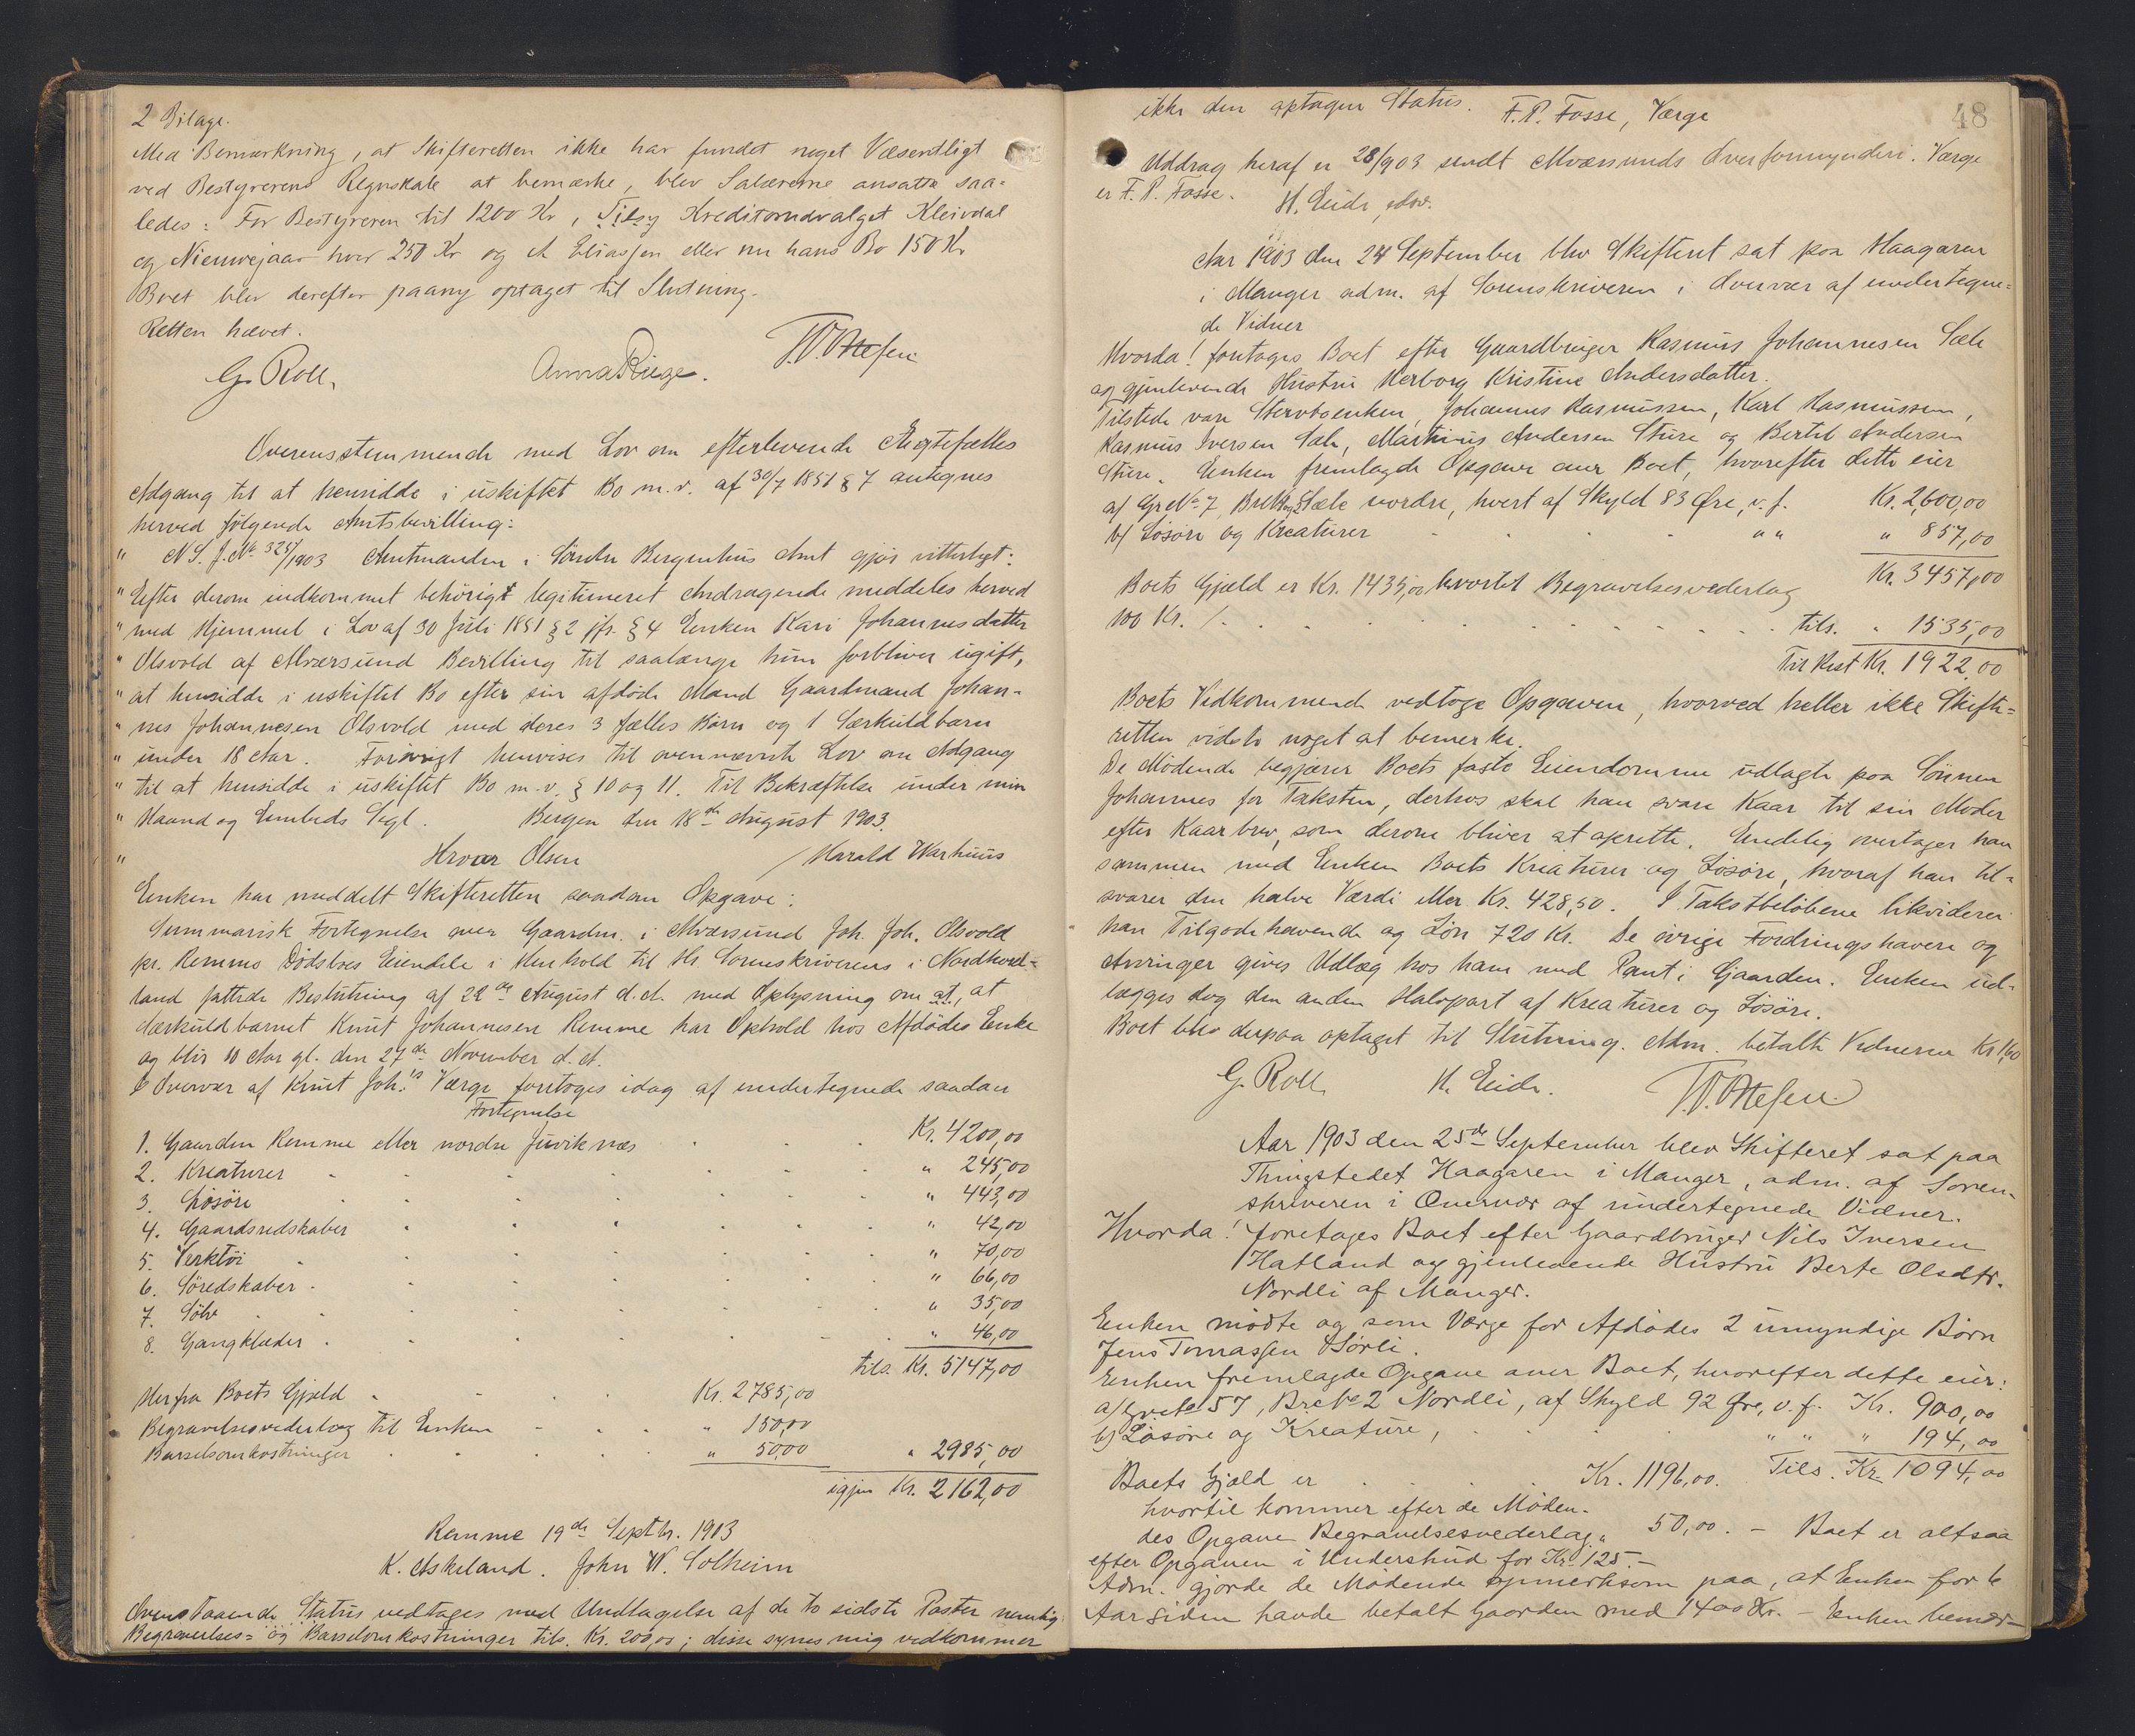 2 Bilage.
Med Bemærkning, at Skifteretten ikke har fundet noget Væsentligt
ved Bestyrerens Regnskab at bemærke, blev Salærerne ansatte saa-
ledes: For Bestyreren til 1200 Kr, Kreditorudvalget Kleivdal
og Nieuwejaar hver 250 Kr og A Eliassen eller nu hans Bo 150 Kr
Boet blev derefter paany optaget til Slutning.
Retten hævet.
G. Roll. Anna Riege.
Overensstemmende med Lov om efterlevende Ægtefælles
Adgang til at hensidde i uskiftet Bo m.v. af 30/7 1851 § 7 antegnes
herved følgende Amtsbevilling:
" N S. J. No 325/1903 Amtmanden i Søndre Bergenhus Amt gjør vitterligt:
" Efter derom indkommet behørigt legitimeret Andragende meddeles herved
" med Hjemmel i Lov af 30 Juli 1851 § 2 jfr. § 4 Enken Kari Johannesdatter
" Olsvold af Alversund Bevilling til saalænge hun forbliver ugift,
" at hensidde i uskiftet Bo efter sin afdøde Mand Gaardmand Johan-
" nes Johannesen Olsvold med deres 3 fælles Børn og 1 Særkuldbarn
" under 18 Aar. Forøvrigt henvises til ovennævnte Lov om Adgang
" til at hensidde i uskiftet Bo m.v. § 10 og 11. Til Bekræftelse under min
" Haand og Embeds Segl. Bergen den 18de August 1903.
" Hroar Olsen / Harald Warhuus
Enken har meddelt Skifteretten saadan Opgave:
Summarisk Fortegnelse over Gaardm. i Alversund Joh. Joh. Olsvold
pr. Remme Dødsboes Eiendele i Henhold til Hr Sorenskriverens i Nordhord-
land fattede Beslutning af 22de August d.A. med Oplysning om at, at
Særkuldbarnet Knut Johannesen Remme har Ophold hos Afdødes Enke
og blir 10 Aar gl. den 27de November d.A.
I Overvær af Knut Joh.'s Værge foretoges idag af undertegnede saadan
Fortegnelse
1. Gaarden Remme eller nordre Juviknæs Kr. 4200,00
2. Kreaturer " 245,00
3. Løsøre " 443,00
4. Gaardsredskaber " 42,00
5. Verktøi " 70,00
6. Søredskaber " 66,00
7. Sølv " 35,00
8. Gangklæder " 46,00
tils. Kr. 5147,00
Herfra Boets Gjæld Kr. 2785,00
Begravelsesvederlag til Enken " 150,00
Barselsomkostninger " 50,00 " 2985,00
igjen Kr. 2162,00
Remme 19de Septbr. 1903
K. Askeland. John W. Solheim
Ovenstaaende Status vedtages med Undtagelse af de to sidste Poster nemlig
Begravelses- og Barselomkostninger tils. Kr. 200,00; disse synes mig vedkommer
48
ikke den optagne Status. F. P. Fosse, Værge
Uddrag heraf er 28/9 03 sendt Alversunds Overformynderi. Værge
er F. P. Fosse. H. Eide
Aar 1903 den 24 September blev Skifteret sat paa Haagaren
i Manger adm. af Sorenskriveren i Overvær af undertegne-
de Vidner
Hvorda! foretages Boet efter Gaardbruger Rasmus Johannesen Sæle
og gjenlevende Hustru Herborg Kristine Andersdatter.
Tilstede vare Stervboenken, Johannes Rasmussen, Karl Rasmussen,
Rasmus Iversen Sæle, Martinus Andersen Sture og Bertel Andersen
Sture. Enken fremlagde Opgave over Boet, hvorefter dette eier
a/ Gr No 7, Sæle nordre, hvert af Skyld 83 Øre, v. f. Kr. 2,600,00
b/ Løsøre og Kreaturer " " " 857,00
Kr. 3457,00
Boets Gjæld er Kr. 1435,00 hvortil Begravelsesvederlag
100 Kr. /. tils. " 1535,00
Til Rest Kr. 1922,00
Boets Vedkommende vedtoge Opgaven, hvorved heller ikke Skifte-
retten vidste noget at bemerke.
De Mødende begjærer Boets faste Eiendomme udlagte paa Sønnen
Johannes for Taksten, derhos skal han svare Kaar til sin Moder
efter Kaarbrev, som derom bliver at oprette. Endelig overtager han
sammen med Enken Boets Kreaturer og Løsøre, hvoraf han til-
svarer den halve Værdi eller Kr. 428,50. I Takstbeløbene likviderer
han Tilgodehavende og Løn 720 Kr. De øvrige Fordringshavere og
Arvinger gives Udlæg hos ham med Pant i Gaarden. Enken ud-
lægges dog den anden Halvpart af Kreaturer og Løsøre.
Boet blev derpaa optaget til Slutning. Adm. betalte Vidnerne Kr 1,60
G. Roll H. Eide.
Aar 1903 den 25de September blev Skifteret sat paa
Thingstedet Haagaren i Manger, adm. af Soren-
skriveren i Overvær af undertegnede Vidner.
Hvorda! foretages Boet efter Gaardbruger Nils Iversen
Hatland og gjenlevende Hustru Berte Olsdtr.
Nordli af Manger.
Enken mødte og som Værge for Afdødes 2 umyndige Børn
Jens Tomassen Sørli.
Enken fremlagde Opgave over Boet, hvorefter dette eier:
a/ 57, Br No 2 Nordli, af Skyld 92 Øre, v. f. Kr. 900,00
b) Løsøre og Kreature, " " " 194,00
Tils. Kr. 1094,00
Boets Gjæld er Kr. 1196,00.
hvortil kommer efter de Møden-
des Opgave Begravelsesvederlag " 50,00. – Boet er altsaa
efter Opgaven i Underskud for Kr. 125.–
Adm. gjorde de Mødende opmerksom paa, at Enken for 6
Aar siden havde betalt Gaarden med 1400 Kr. – Enken bemær-